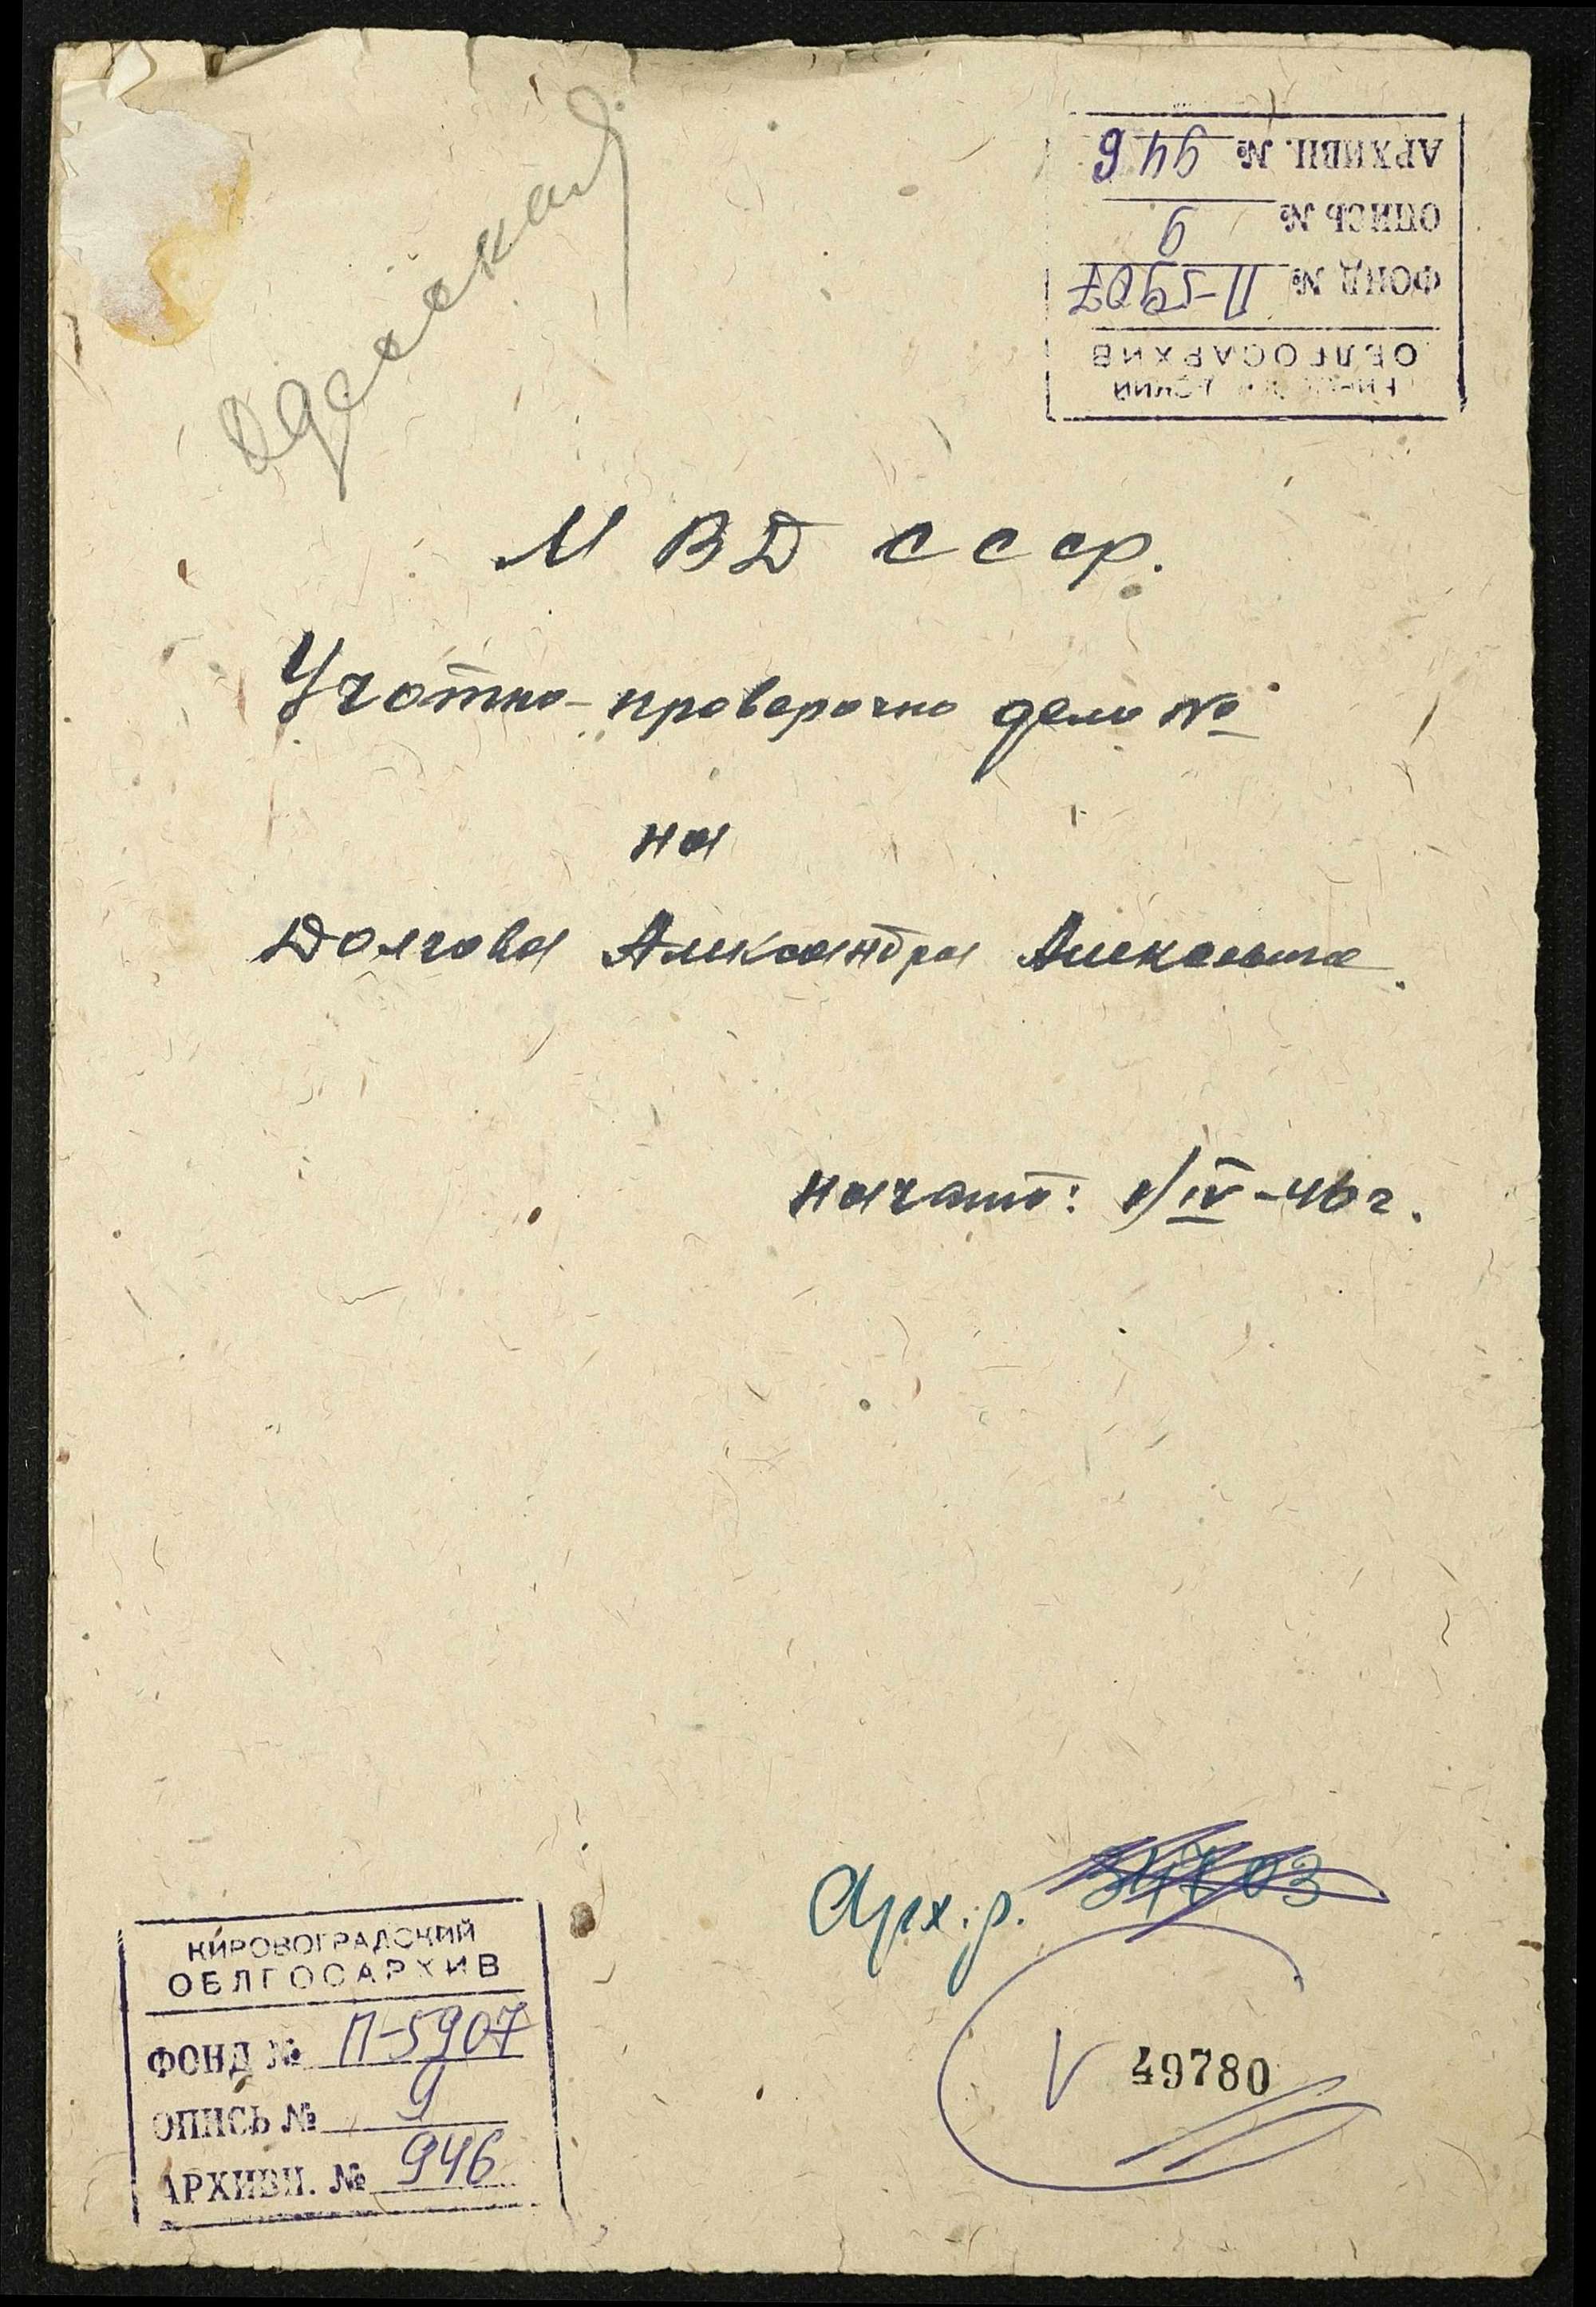 Одесская
АРХИВН. № 946
ОПИСЬ № 9
ФОНД № П-5907
ОБЛГОСАРХИВ
МВД СССР.
Учотно-проверочно дело №
на
Долгова Александра
начато: 1/IV-46 г.
Арх. р. 34703
V 49780
КИРОВОГРАДСКИЙ
ОБЛГОСАРХИВ
ФОНД № П-5907
ОПИСЬ № 9
АРХИВН. № 946